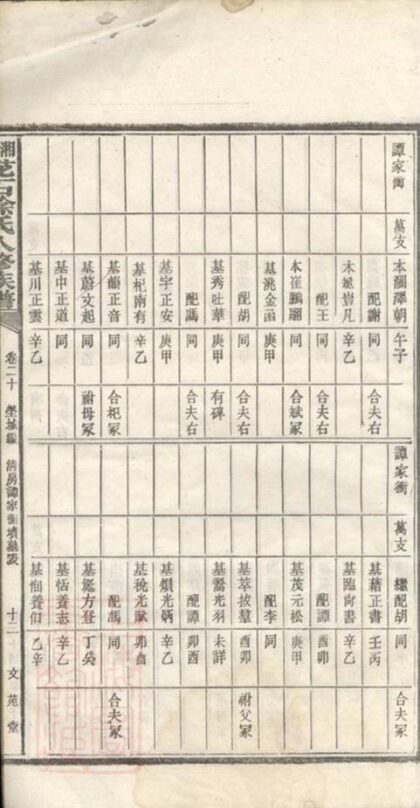 譚家衝
萬支
本頤澤朝 午子
配謝 同 合夫右
本斌豈凡 辛乙
配王 同 合夫右
本崔鵬翮 同 合斌冢
基洮金函 庚甲
配胡 同 合夫右
基秀吐華 庚甲 有碑
配馮 同 合夫右
基字正安 庚甲
基杞南有 辛乙
基韻正音 同 合杞冢
基蔚文起 同 祔母冢
基中正道 同
基川正雲 辛乙
譚家衝
萬支
繼配胡 同 合夫右
基藉正書 壬丙
基臨尙書 辛乙
配譚 酉卯
基茂元松 庚甲
配李 同
基萃拔羣 酉卯 祔父冢
基鷟光羽 未詳
配譚 卯酉
基烺光炳 辛乙
基稅光賦 卯酉
配馮 同 合夫冢
基挻方登 丁癸
基恬養志 辛乙
基恒養仙 乙辛
湘花石徐氏八修族譜
卷二十
塋域編
譚家衝墳墓表
十二
文苑堂